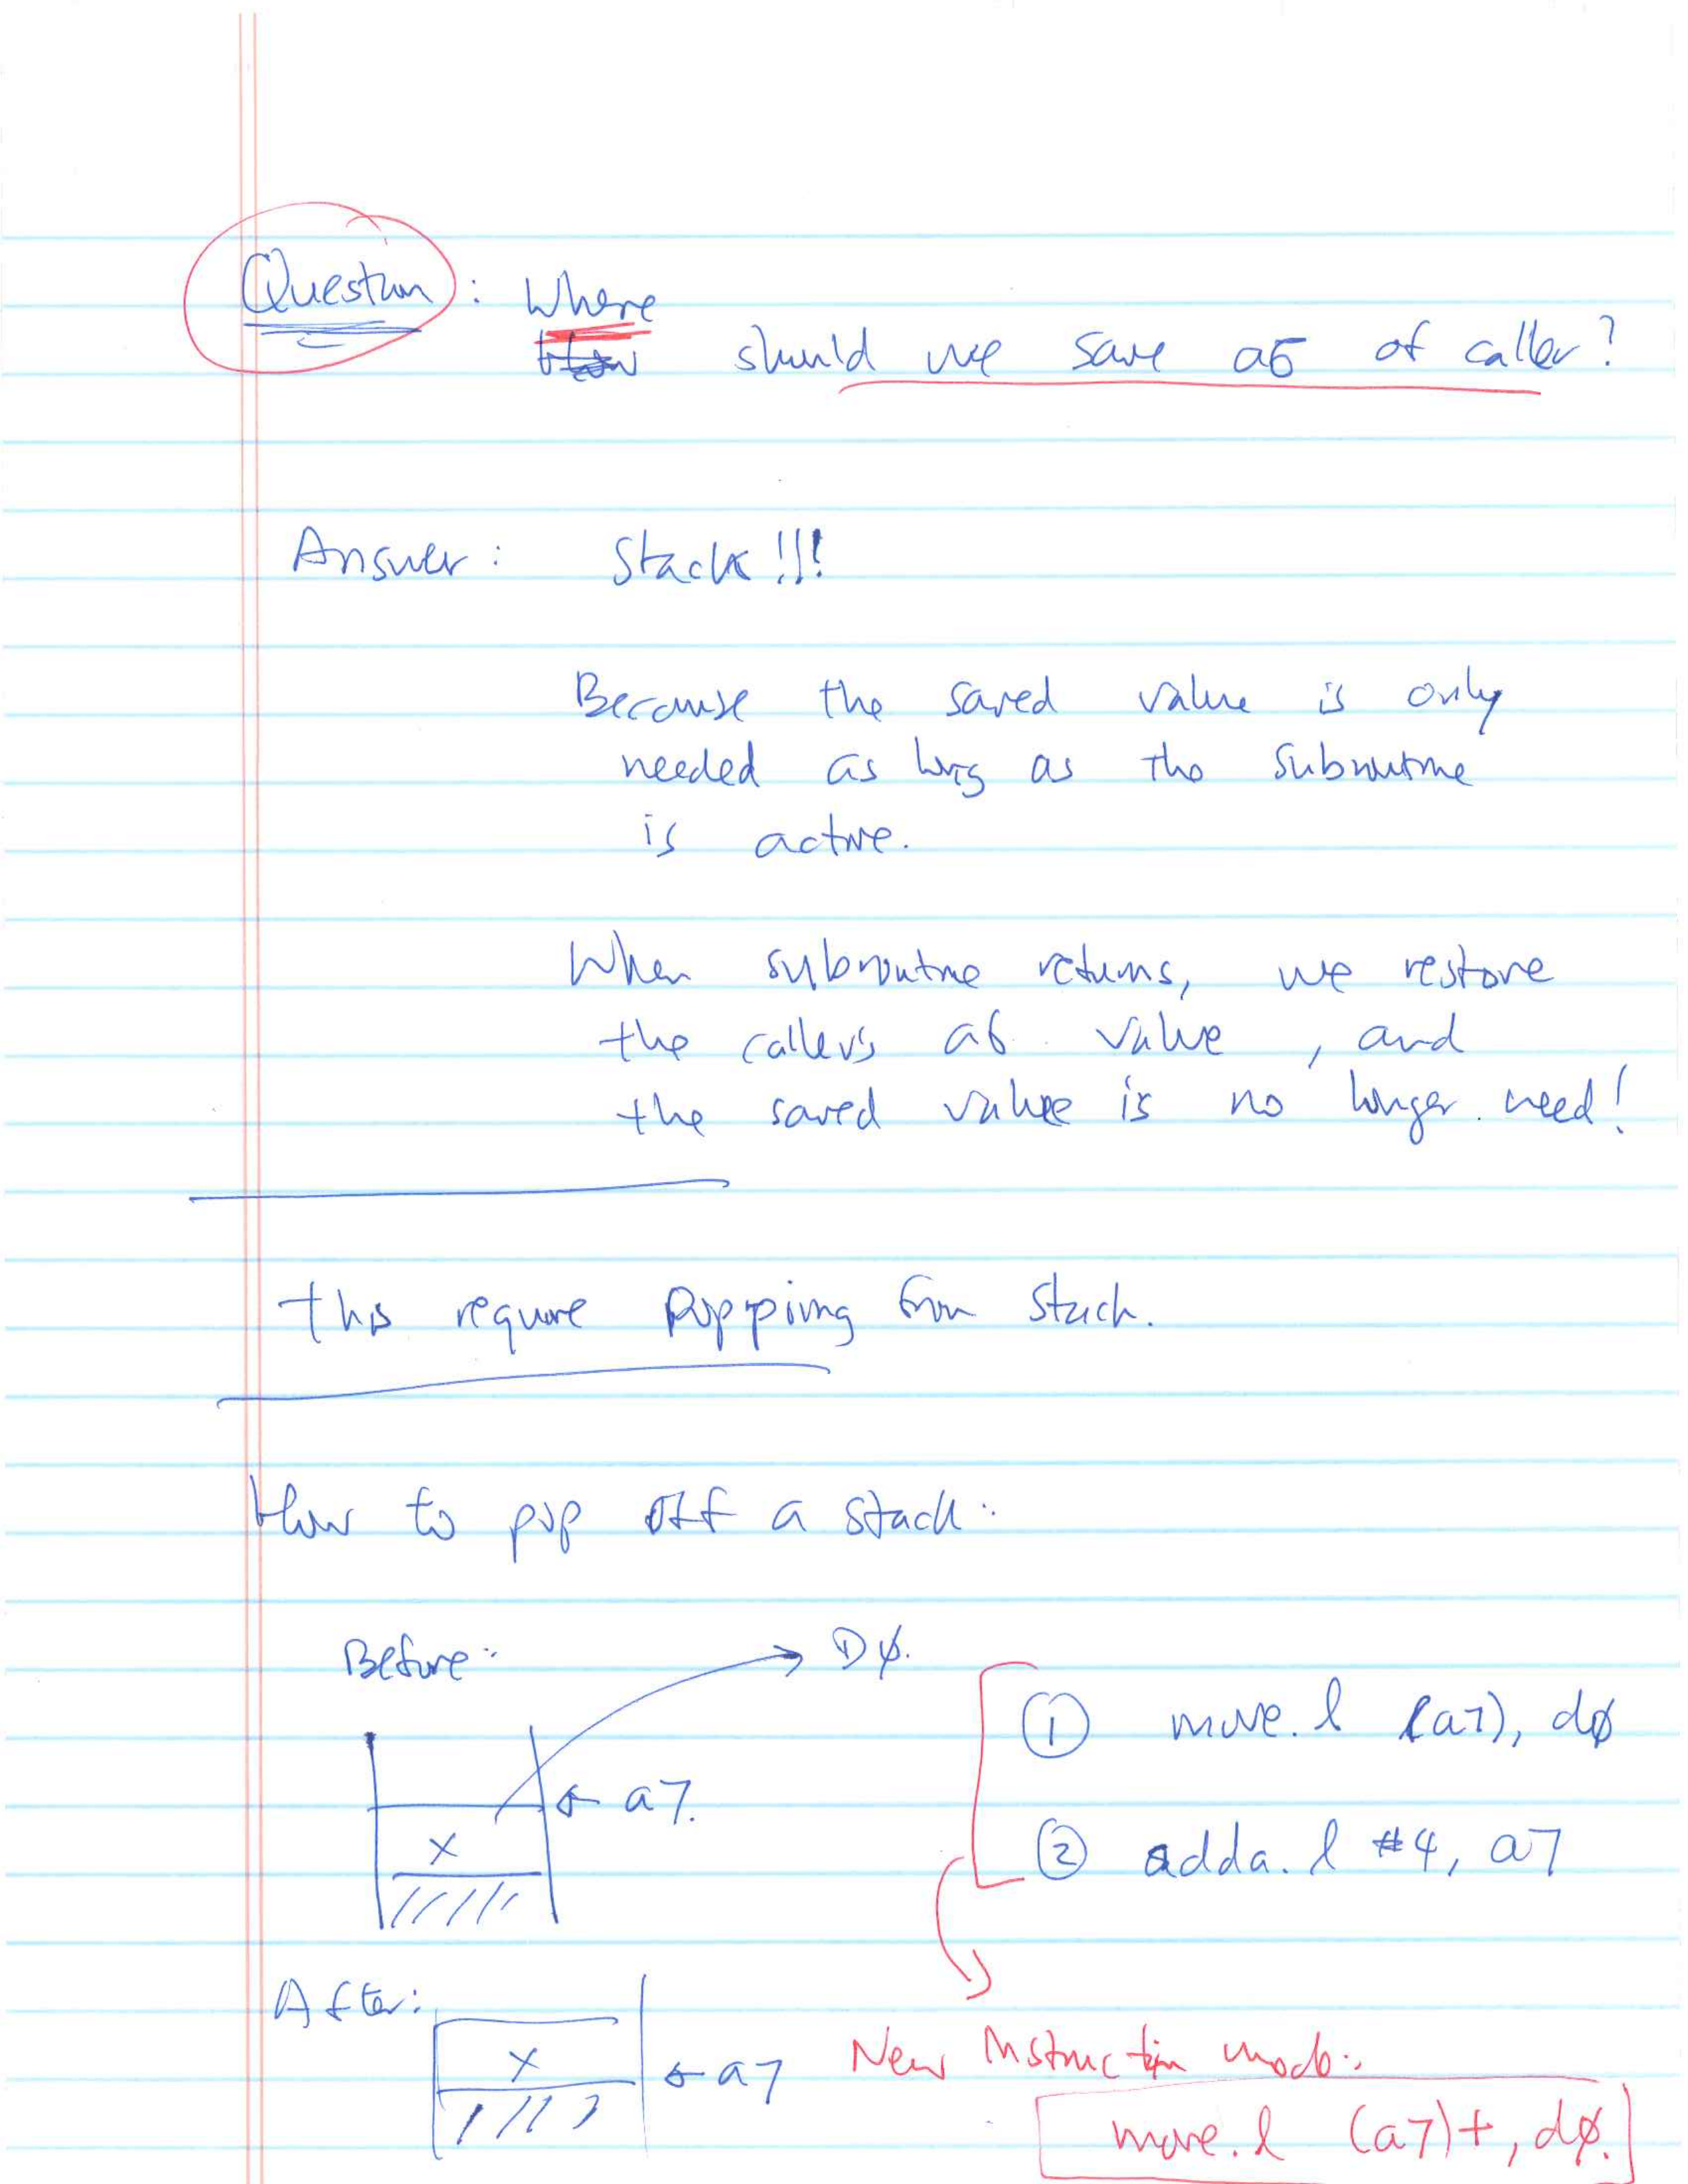 Question : Where
How should we save a6 of caller?
Answer : Stack !!!
Because the saved value is only
needed as long as the subroutine
is active.
When subroutine returns, we restore
the caller's a6 value, and
the saved value is no longer need!
this require popping from stack.
How to pop off a stack:
Before: → DØ.
← a7.
x
① move.l (a7), dØ
② adda.l #4, a7
After:
x
← a7
New Instruction mode:
move.l (a7)+, dØ.